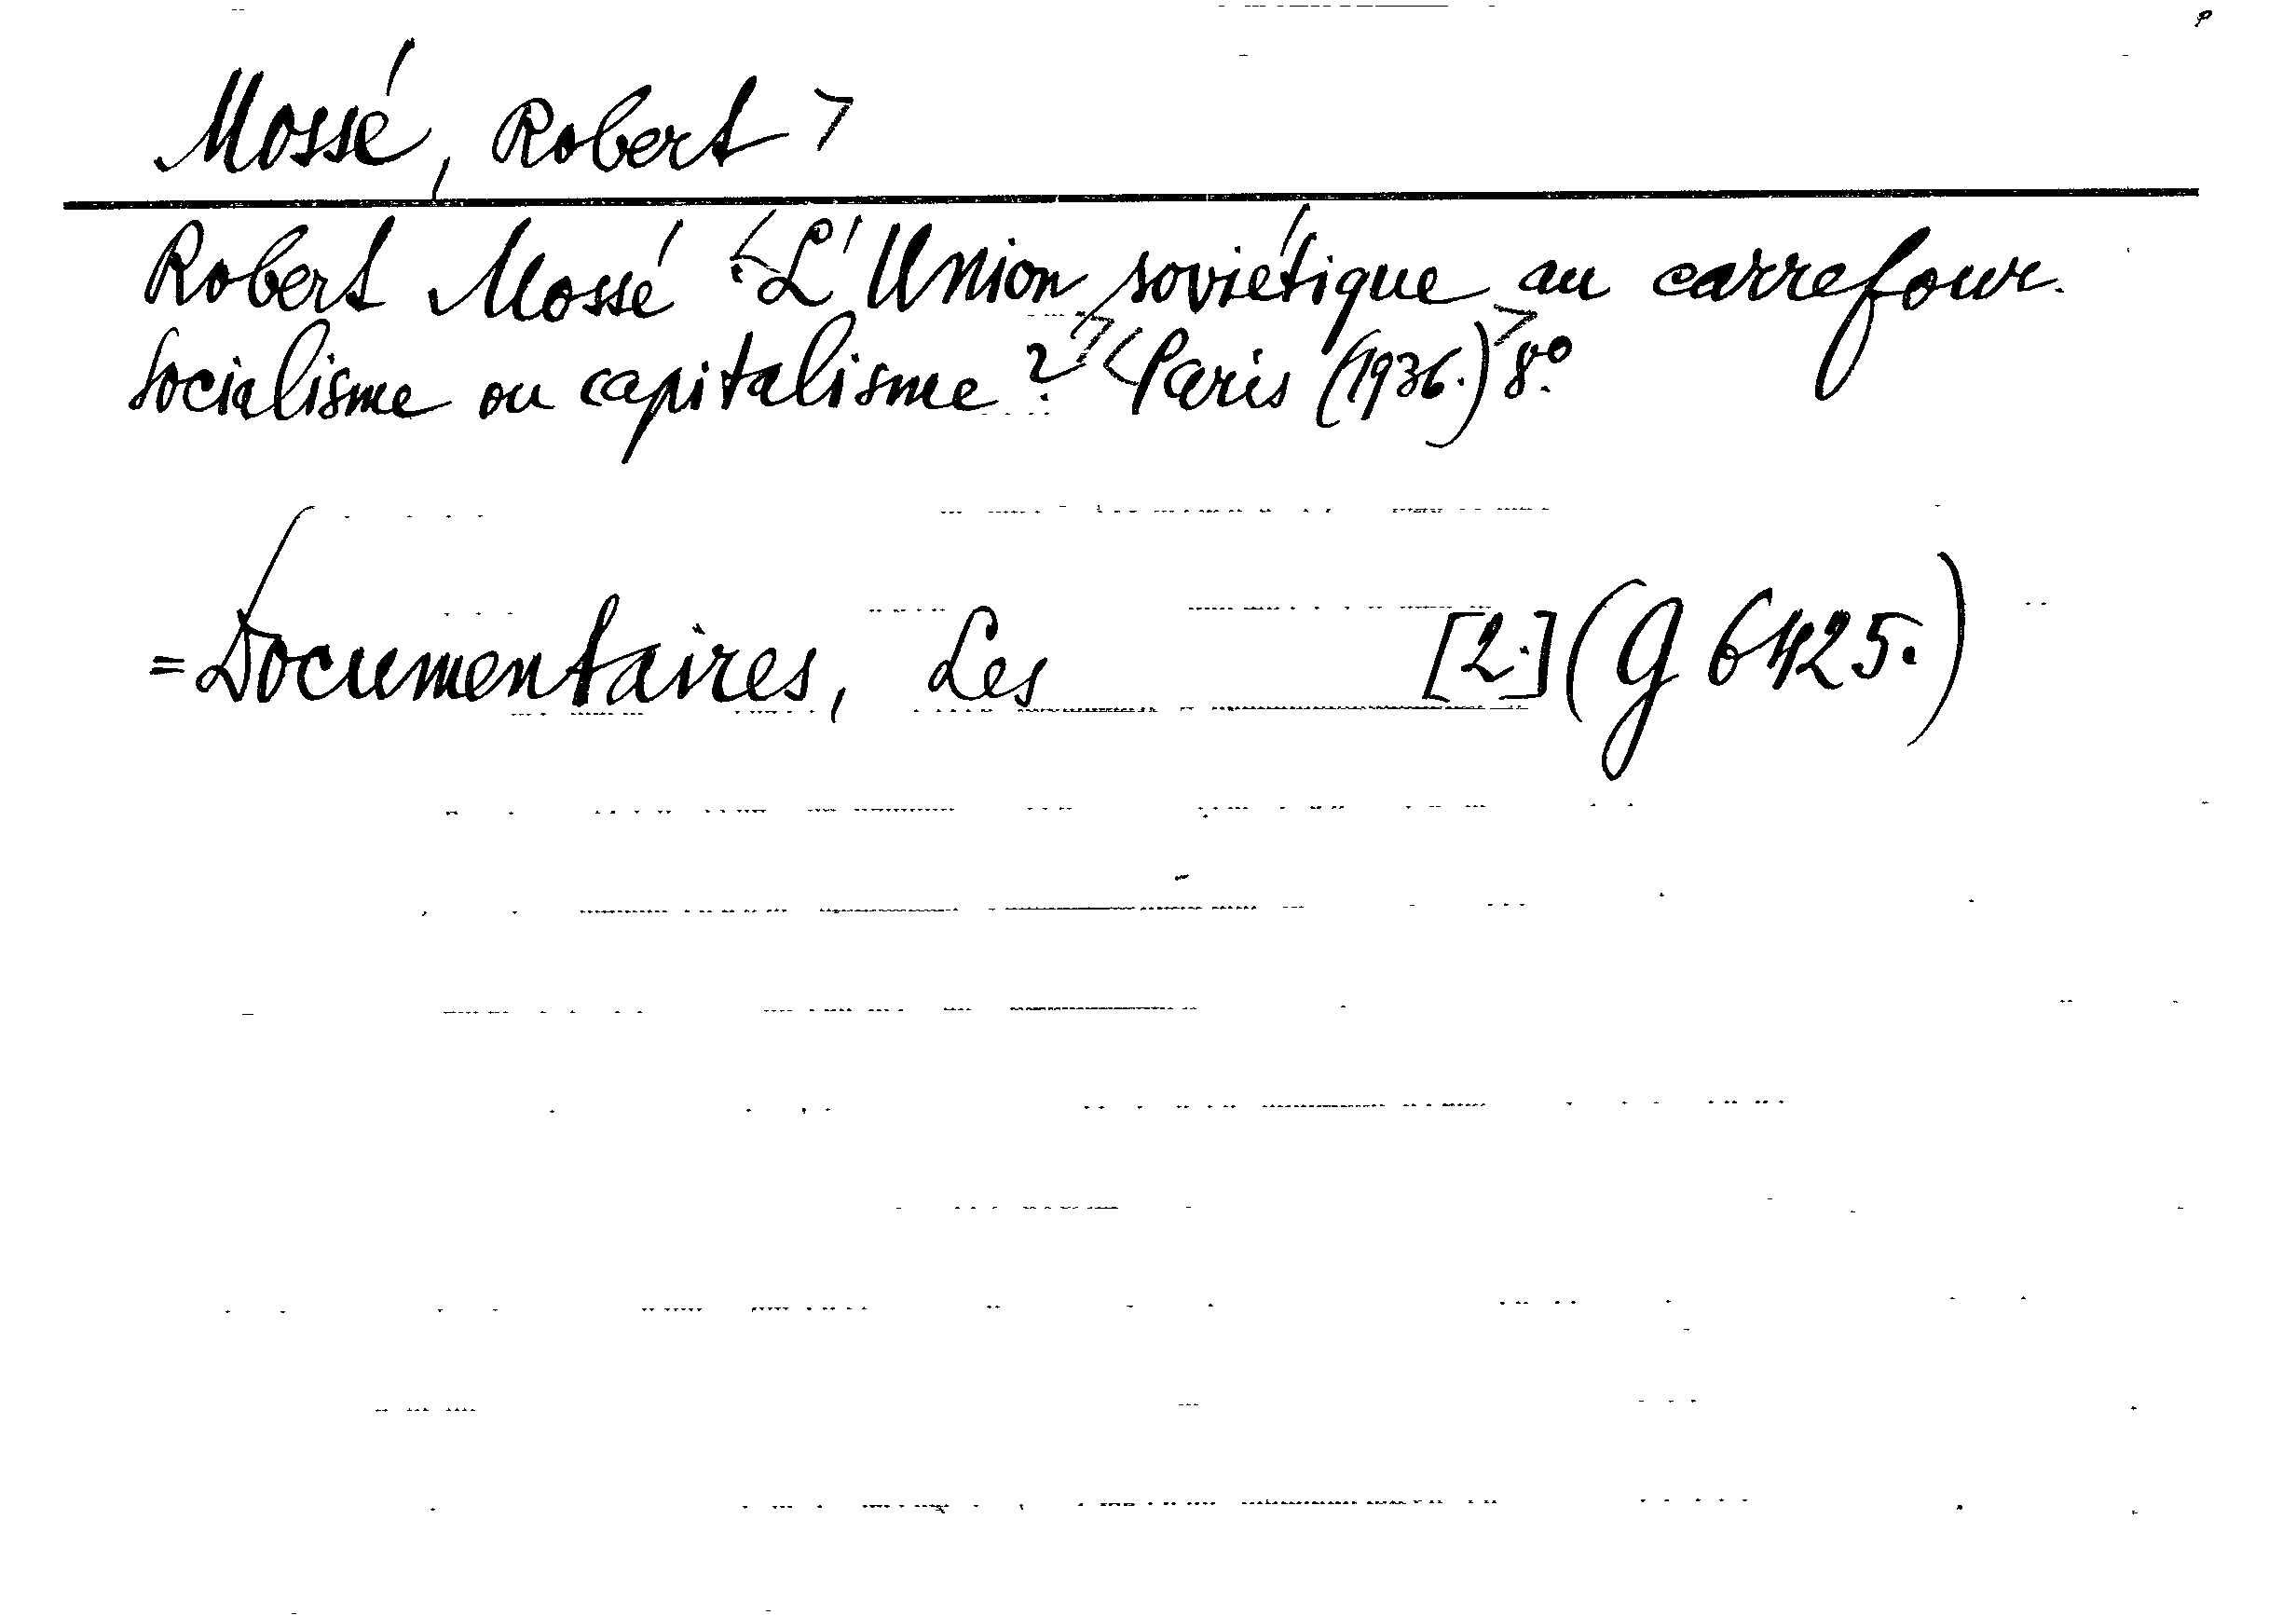 Mossé, Robert >
Robert Mossé : L'Union soviétique au carrefour.
Socialisme ou capitalisme? Paris (1936.) 8°.
= Documentaires, Les [2.] (G 6425.)